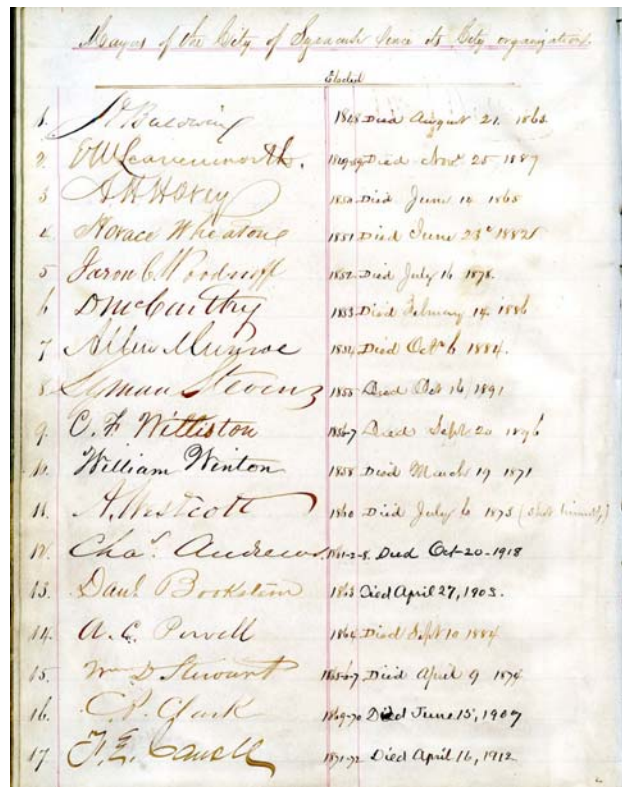 Mayors of the City of Syracuse since its City organization.
Elected
1. Baldwin 1848 Died August 21. 1863
2. E W Leavenworth. 1849-59 Died Nov. 25 1887
3 A H Hovey 1850 Died June 14 1865
4 Horace Wheaton 1851 Died June 23d 1882
5 Jason C Woodruff 1852 Died July 16 1878.
6 D McCarthy 1853 Died February 14 1886
7 Allen Munroe 1854 Died Oct 6 1884.
8 Lyman Stevens 1855 Died Oct 16/1891
9. C. F. Williston 1856-7 Died Sept 20 1896
10. William Winton 1858 Died March 19 1871
11. A. Westcott 1860 Died July 6 1875 (shot himself)
12. Chas. Andrews 1861-2-8. Died Oct-20-1918
13. Danl Bookstein 1863 Died April 27, 1903.
14. A. C. Powell 1864 Died Sept 10 1884
15. Wm D Stewart 1865-6-7 Died April 9 1874
16. C. P. Clark 1869-70 Died June 15, 1907
17 F. E. Carroll 1871-72 Died April 16, 1912